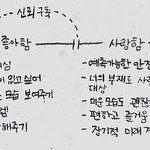 신뢰구축
좋아함
사랑함
심
• 예측가능한 안정
이 있고 싶어
• 너의 부재도 사
는 모습 보여주기
대상
• 미운 모습도 관찰
• 편하고 즐거움
해주기
• 장기적 미래 계